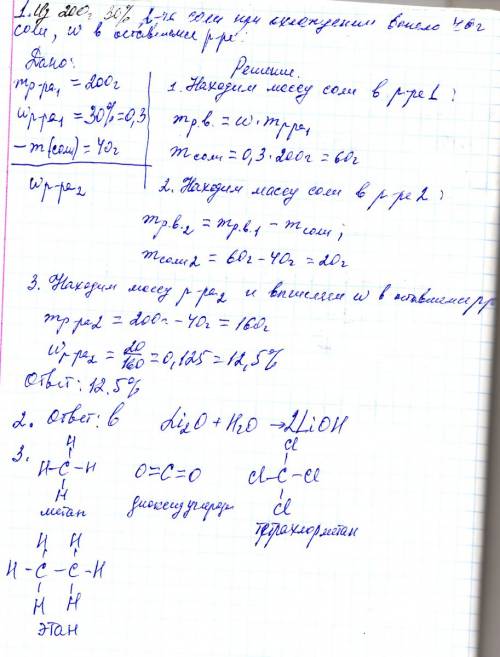 1. Из 200г 30% р-ра соли при охлаждении выпало 40г
соли, w в оставшемся р-ре:
Дано:
mр-ра₁ = 200г
wр-ра₁ = 30% = 0,3
- m (соли) = 40г
wр-ра₂
Решение.
1. Находим массу соли в р-ре 1:
mр.в. = w · mр-ра₁
mсоли = 0,3 · 200г = 60г
2. Находим массу соли в р-ре 2:
mр.в.₂ = mр.в.₁ - mсоли;
mсоли2 = 60г - 40г = 20г
3. Находим массу р-ра₂ и вычислим w в оставшемся рр
mр-ра2 = 200г - 40г = 160г
wр-ра₂ = 20/160 = 0,125 = 12,5%
Ответ: 12.5%
2. Ответ: в Li₂O + H₂O → 2LiOH
3.
H
H-C-H
H
метан
O=C=O
диоксид углерода
Cl
Cl-C-Cl
Cl
тетрахлорметан
H H
H-C-C-H
H H
этан